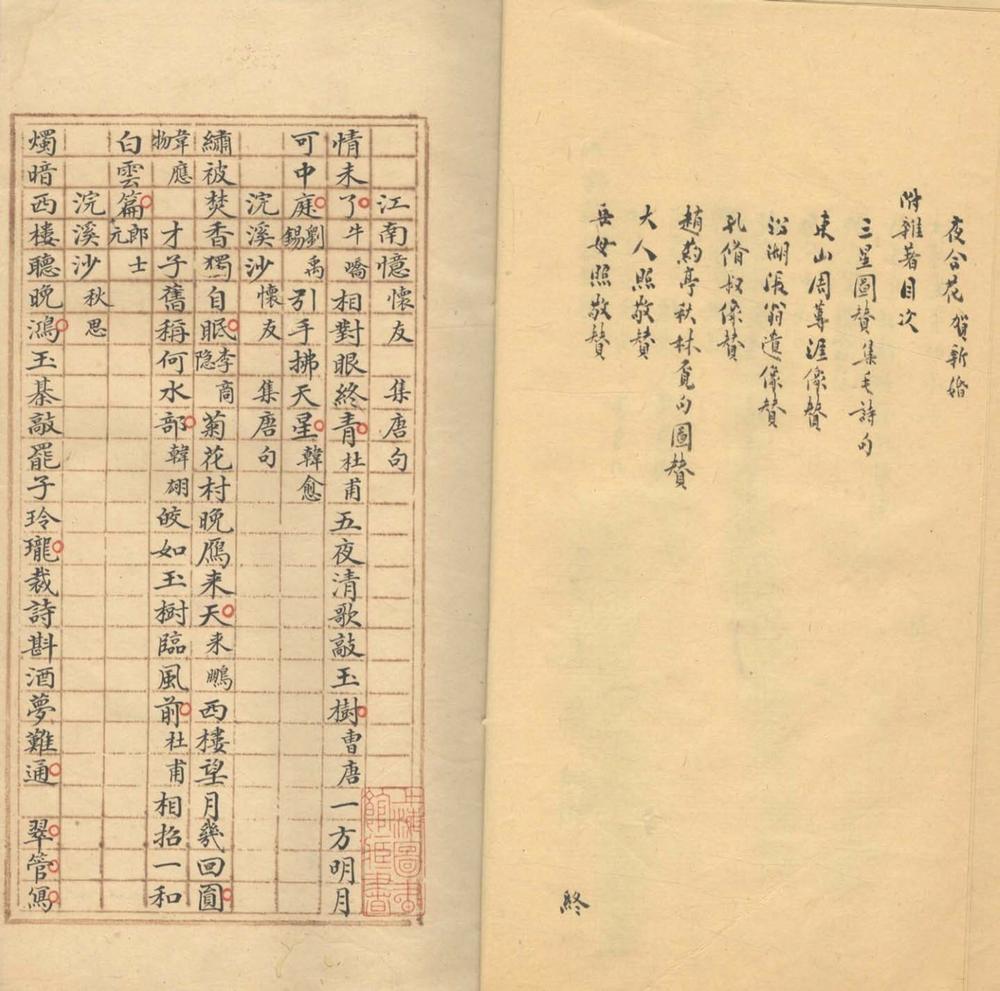 夜合花 賀新婚
附雜著目次
三星圖贊 集毛詩句
東山周蓴涯像贊
汾湖張翁遺像贊
孔脩叔像贊
趙蒳亭秋林覓句圖贊
大人照敬贊
岳母照敬贊
終
江南憶 懷友 集唐句
情未了牛嶠相對眼終青杜甫五夜清歌敲玉樹曹唐一方明月
可中庭劉禹錫引手拂天星韓愈
浣溪沙 懷友 集唐句
繡被焚香獨自眠李商隐菊花村晚鴈来天来鵬西樓望月幾回圓
韋應物才子舊稱何水部韓翃皎如玉樹臨風前杜甫相招一和
白雲篇郎士元
浣溪沙 秋思
燭暗西樓聽晚鴻玉棊敲罷子玲瓏裁詩斟酒夢難通 翠管寫
上海圖書館藏書